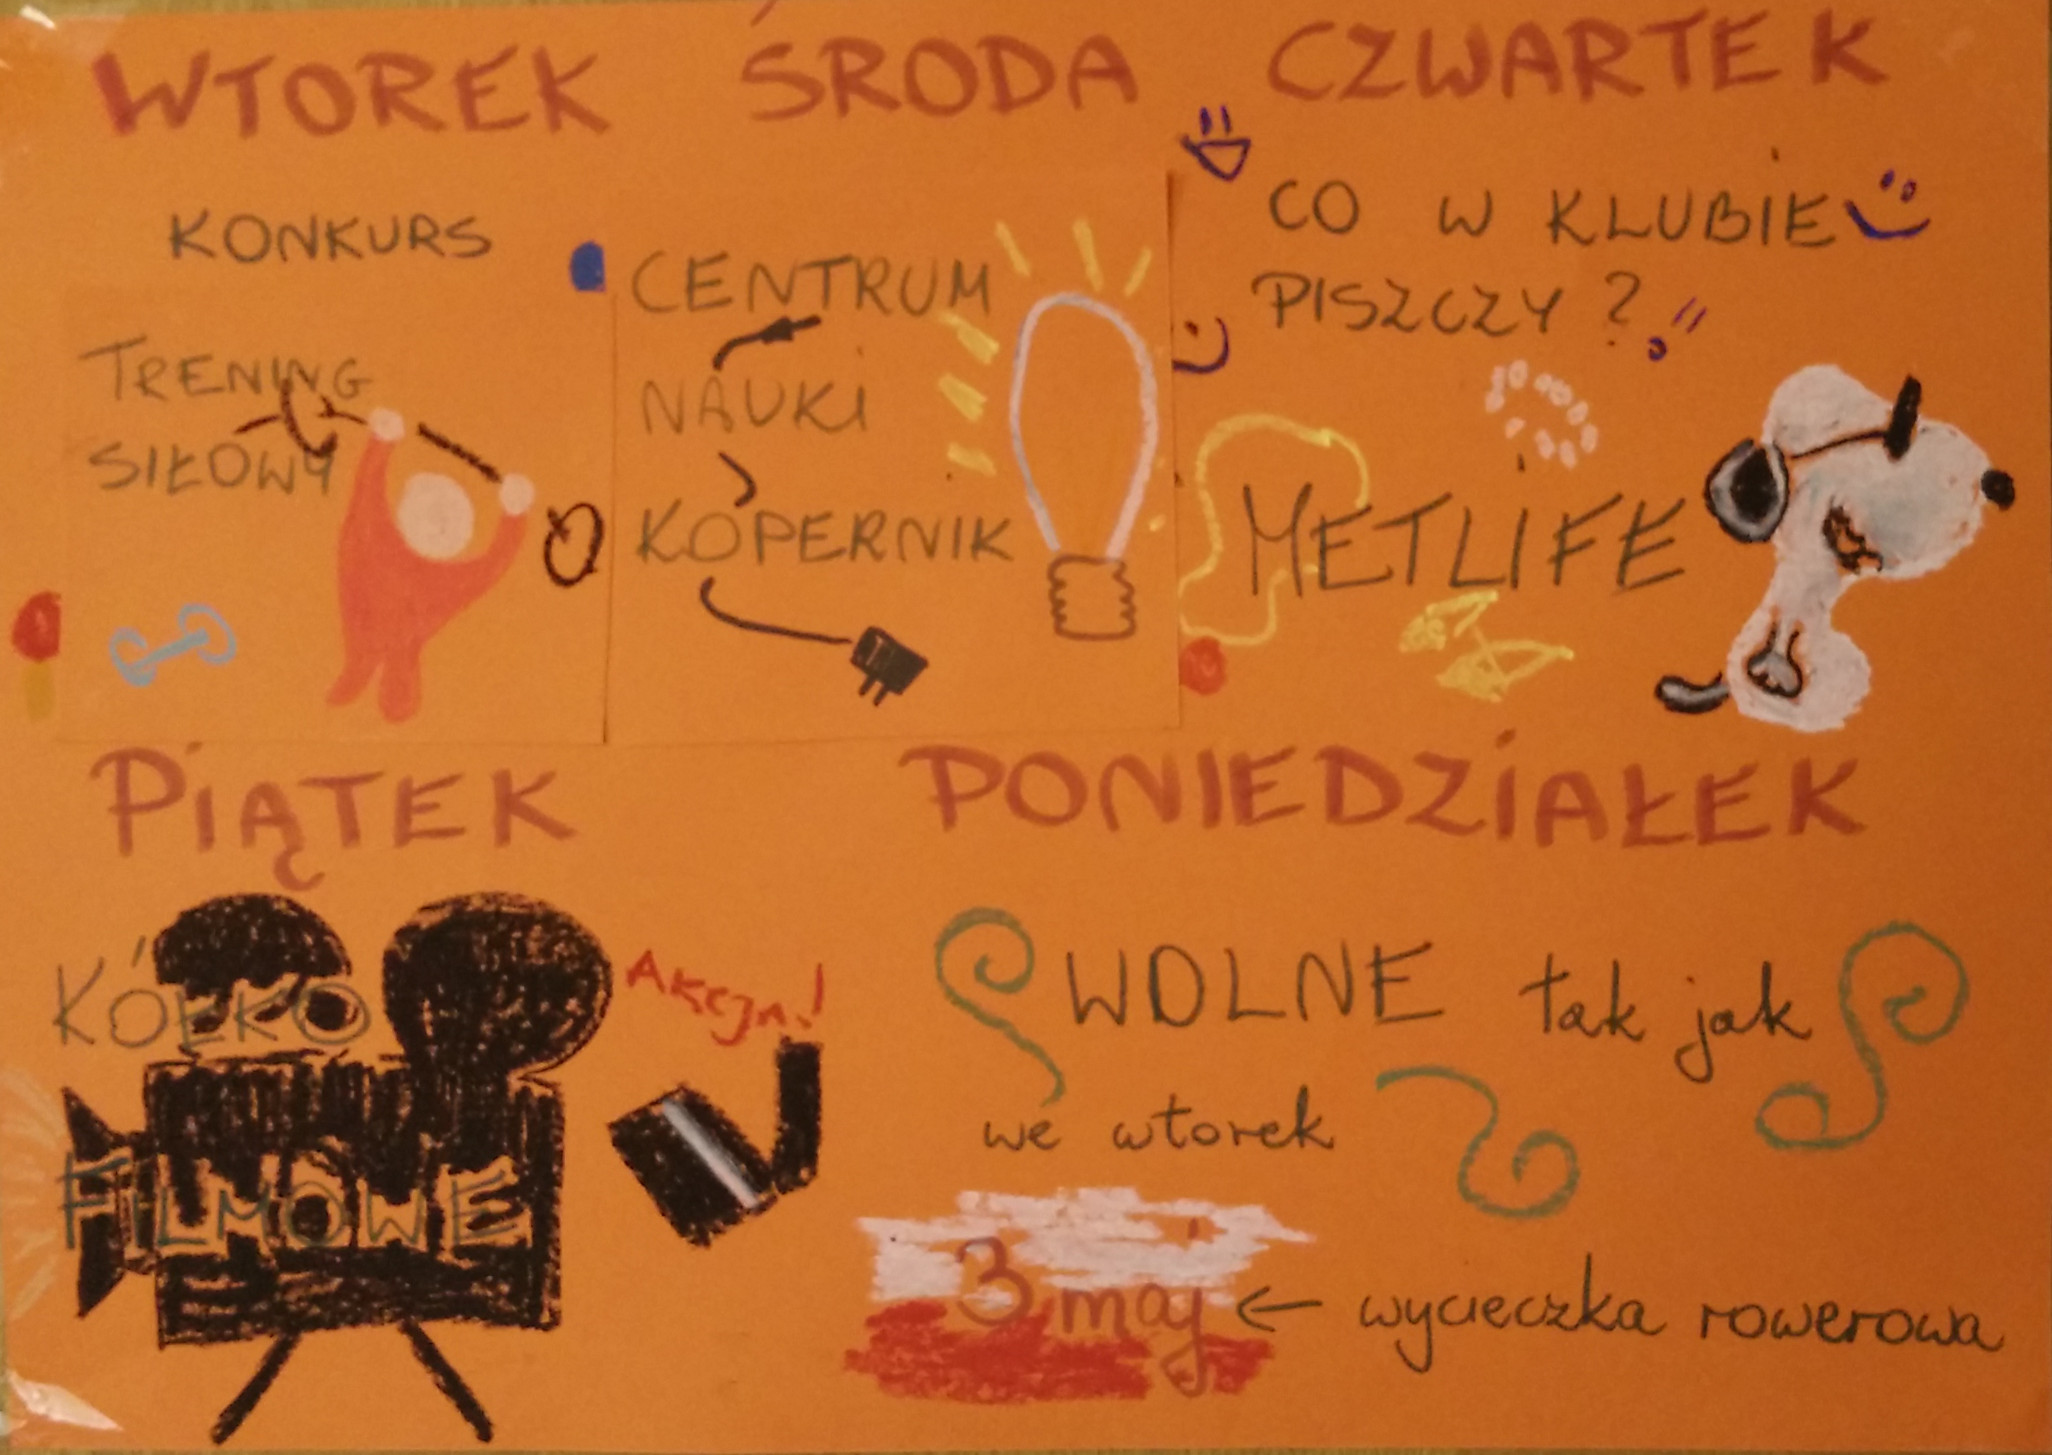 WTOREK
KONKURS
TRENING
SIŁOWY
ŚRODA
CENTRUM
NAUKI
KOPERNIK
CZWARTEK
CO W KLUBIE
PISZCZY?
METLIFE
PIĄTEK
KÓŁKO
FILMOWE
AKCJA!
PONIEDZIAŁEK
WOLNE tak jak
we wtorek
3 maj ← wycieczka rowerowa